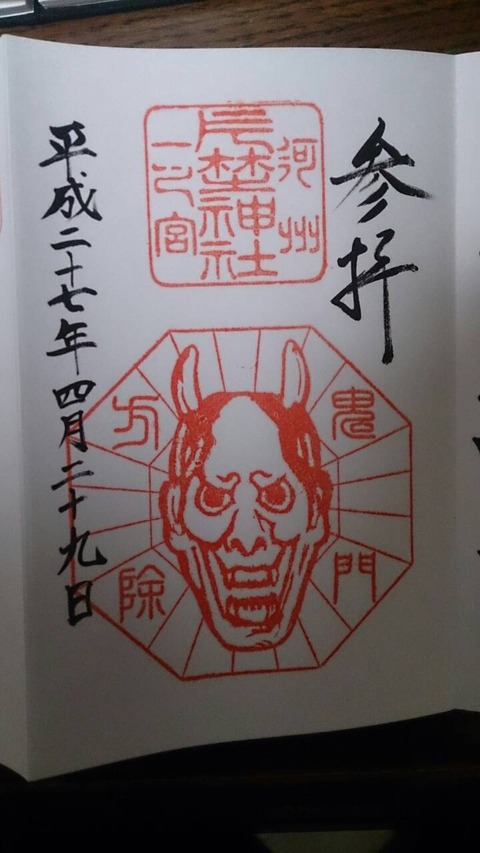 参拝
河州
片埜神社
一之宮
鬼門
方除
平成二十七年四月二十九日